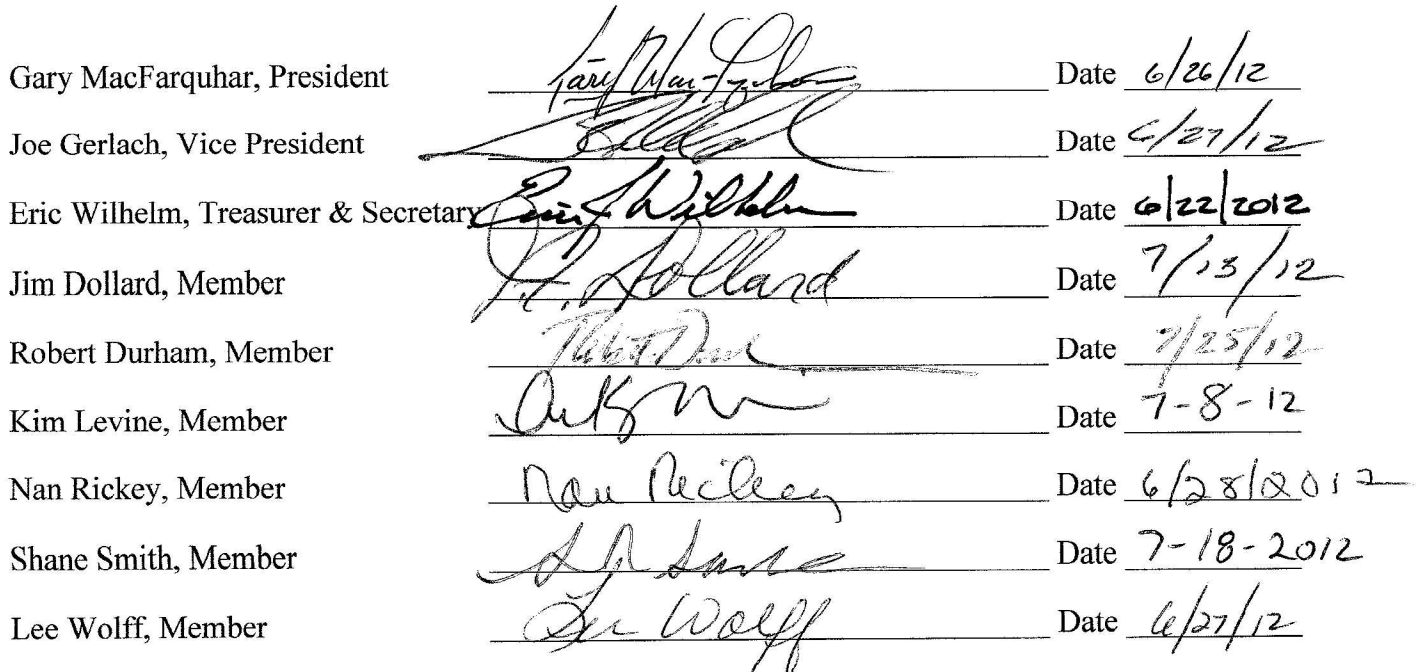 Gary MacFarquhar, President Gary MacFarquhar Date 6/26/12
Joe Gerlach, Vice President Date 6/27/12
Eric Wilhelm, Treasurer & Secretary Eric J Wilhelm Date 6/22/2012
Jim Dollard, Member J.E. Dollard Date 7/13/12
Robert Durham, Member Date 7/25/12
Kim Levine, Member Date 7-8-12
Nan Rickey, Member Nan Rickey Date 6/28/2012
Shane Smith, Member Date 7-18-2012
Lee Wolff, Member Lee Wolff Date 6/27/12